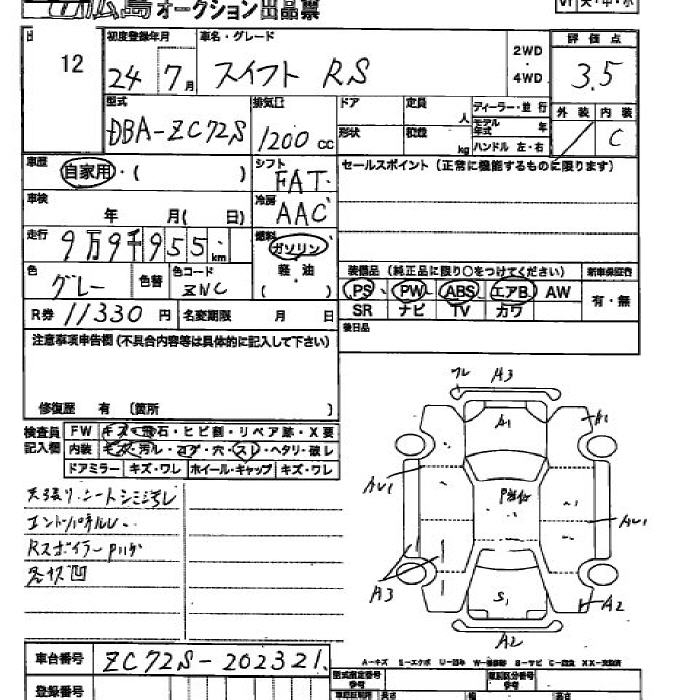 広島オークション出品票
12
初度登録年月
24年7月
車名・グレード
スイフト RS
2WD・4WD
評価点
3.5
外装 内装
C
型式
DBA-ZC72S
排気量
1200 cc
ドア 定員 人
形状 積載 kg
ディーラー・並行
モデル年式 年
ハンドル 左・右
車歴
自家用・( )
シフト
FAT
セールスポイント(正常に機能するものに限ります)
車検
年 月( 日)
冷房
AAC
走行
9万9千955km
燃料
ガソリン
軽油
( ・ )
色
グレー
色替
色コード
ZNC
装備品(純正品に限り○をつけてください)
新車保証書
PS PW ABS エアB AW
有・無
SR ナビ TV カワ
R券 11330円
名変期限 月 日
後日品
注意事項申告欄(不具合内容等は具体的に記入して下さい)
修復歴 有 〔箇所 〕
検査員記入欄
FW キズ・飛石・ヒビ割・リペア跡・X要
内装 キズ・汚レ・コゲ・穴・スレ・ヘタリ・破レ
ドアミラー キズ・ワレ ホイール・キャップ キズ・ワレ
天張リ・シートシミ汚レ
Rスポイラー
各キズ凹
A3
A1
A1
AU1
AU1
A3
S1
A2
A2
車台番号
ZC72S-202321
登録番号
型式指定番号
類別区分番号